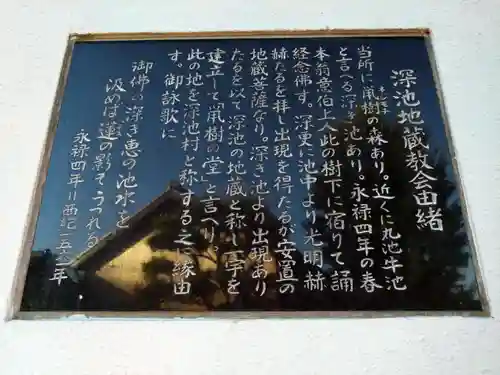 深池地蔵教会由緒
当所に凧樹の森あり。近くに丸池牛池
と言へる深き池あり。永禄四年の春
本翁意伯上人此の樹下に宿りて誦
経念佛す。深更に池中より光明赫
赫たるを拝し出現を得たるが安置の
地蔵菩薩なり。深き池より出現あり
たるを以て深池の地蔵と称し一宇を
建立して「凧樹の堂」と言へり。
此の地を深池村と称する之に縁由
す。御詠歌に
御佛の深き恵の池水を
汲めば蓮の影てうつれる
永禄四年=西紀一五六一年